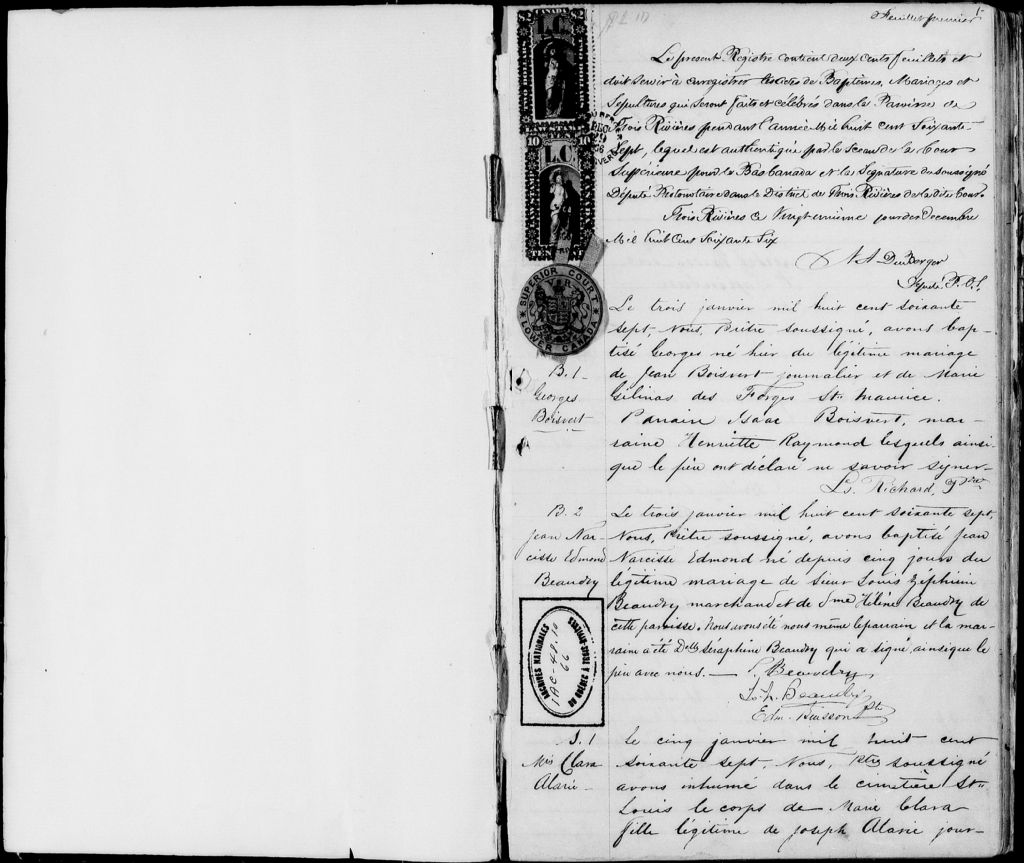 Feuillet premier
1
Le present Registre contient deux cents feuillets et
doit servir à enregistrer les actes de Baptêmes, Mariages et
Sépultures qui seront faits et célébrés dans la Paroisse de
Trois Rivières pendant l'année Mil huit cent Soixante
Sept, lequel est authentiqué par le Sceau de la Cour
Supérieure pour le Bas Canada et la Signature du soussigné
Député Protonotaire dans le District de Trois Rivières de la dite Cour.
Trois Rivières ce Vingt unième jour de Decembre
Mil huit Cent Soixante Six
Député P.C.S.
CANADA
$2 $2
L.C.
10 10
L.C.
SUPERIOR COURT
LOWER CANADA
B. 1
Georges
Boisvert
Le trois janvier mil huit cent soixante
sept, Nous, Prêtre soussigné, avons bap-
tisé Georges né hier du légitime mariage
de Jean Boisvert journalier et de Marie
Gélinas des Forges St. Maurice.
Parrain Isaac Boisvert, mar-
raine Henriette Raymond lesquels ainsi
que le père ont déclaré ne savoir signer-
Ls. Richard, Ptre
B. 2
Jean Nar-
cisse Edmond
Beaudry
Le trois janvier mil huit cent soixante sept,
Nous, Prêtre soussigné, avons baptisé Jean
Narcisse Edmond né depuis cinq jours du
légitime mariage de Sieur Louis Zéphirin
Beaudry marchand et de Dme Hélène Beaudry de
cette paroisse. Nous avons été nous même le parrain et la mar-
raine a été Delle Séraphine Beaudry qui a signé ainsi que le
père avec nous. — S. Beaudry
L. Z. Beaudry
Edm. Buisson Pt
ARCHIVES NATIONALES
DU QUÉBEC À TROIS-RIVIÈRES
66
S. 1
Mie Clara
Alarie
Le cinq janvier mil huit cent
soixante sept, Nous, Ptre soussigné
avons inhumé dans le cimetière St.
Louis le corps de Marie Clara
fille légitime de Joseph Alarie jour-